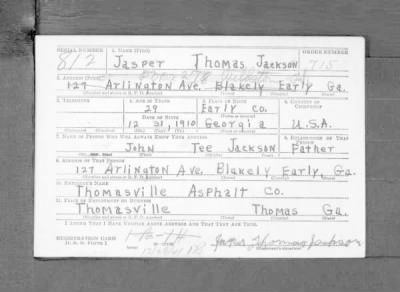 SERIAL NUMBER 1. NAME (Print) ORDER NUMBER
812 Jasper Thomas Jackson 715
2. ADDRESS (Print)
127 Arlington Ave. Blakely Early Ga.
3. TELEPHONE 4. AGE IN YEARS 5. PLACE OF BIRTH 6. COUNTRY OF CITIZENSHIP
29 Early Co.
DATE OF BIRTH
12 31, 1910 Georgia U.S.A.
7. NAME OF PERSON WHO WILL ALWAYS KNOW YOUR ADDRESS 8. RELATIONSHIP OF THAT PERSON
John Tee Jackson Father
9. ADDRESS OF THAT PERSON
127 Arlington Ave. Blakely Early, Ga.
10. EMPLOYER'S NAME
Thomasville Asphalt Co.
11. PLACE OF EMPLOYMENT OR BUSINESS
Thomasville Thomas Ga.
I AFFIRM THAT I HAVE VERIFIED ABOVE ANSWERS AND THAT THEY ARE TRUE.
REGISTRATION CARD
D. S. S. FORM 1 Jasper Thomas Jackson